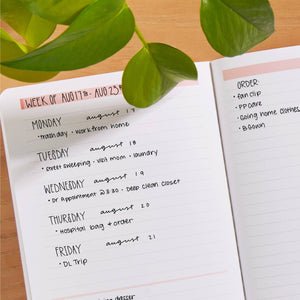 WEEK OF AUG 17TH - AUG 23RD
MONDAY august 17
• trash day • Work from home
TUESDAY august 18
• street sweeping • visit mom • laundry
WEDNESDAY august 19
• Dr Appointment @ 3:30 • Deep Clean Closet
THURSDAY august 20
• Hospital bag + order
FRIDAY august 21
• DL Trip
dresser
ORDER:
• fan clip
• PP care
• Going home clothes
• B Gown